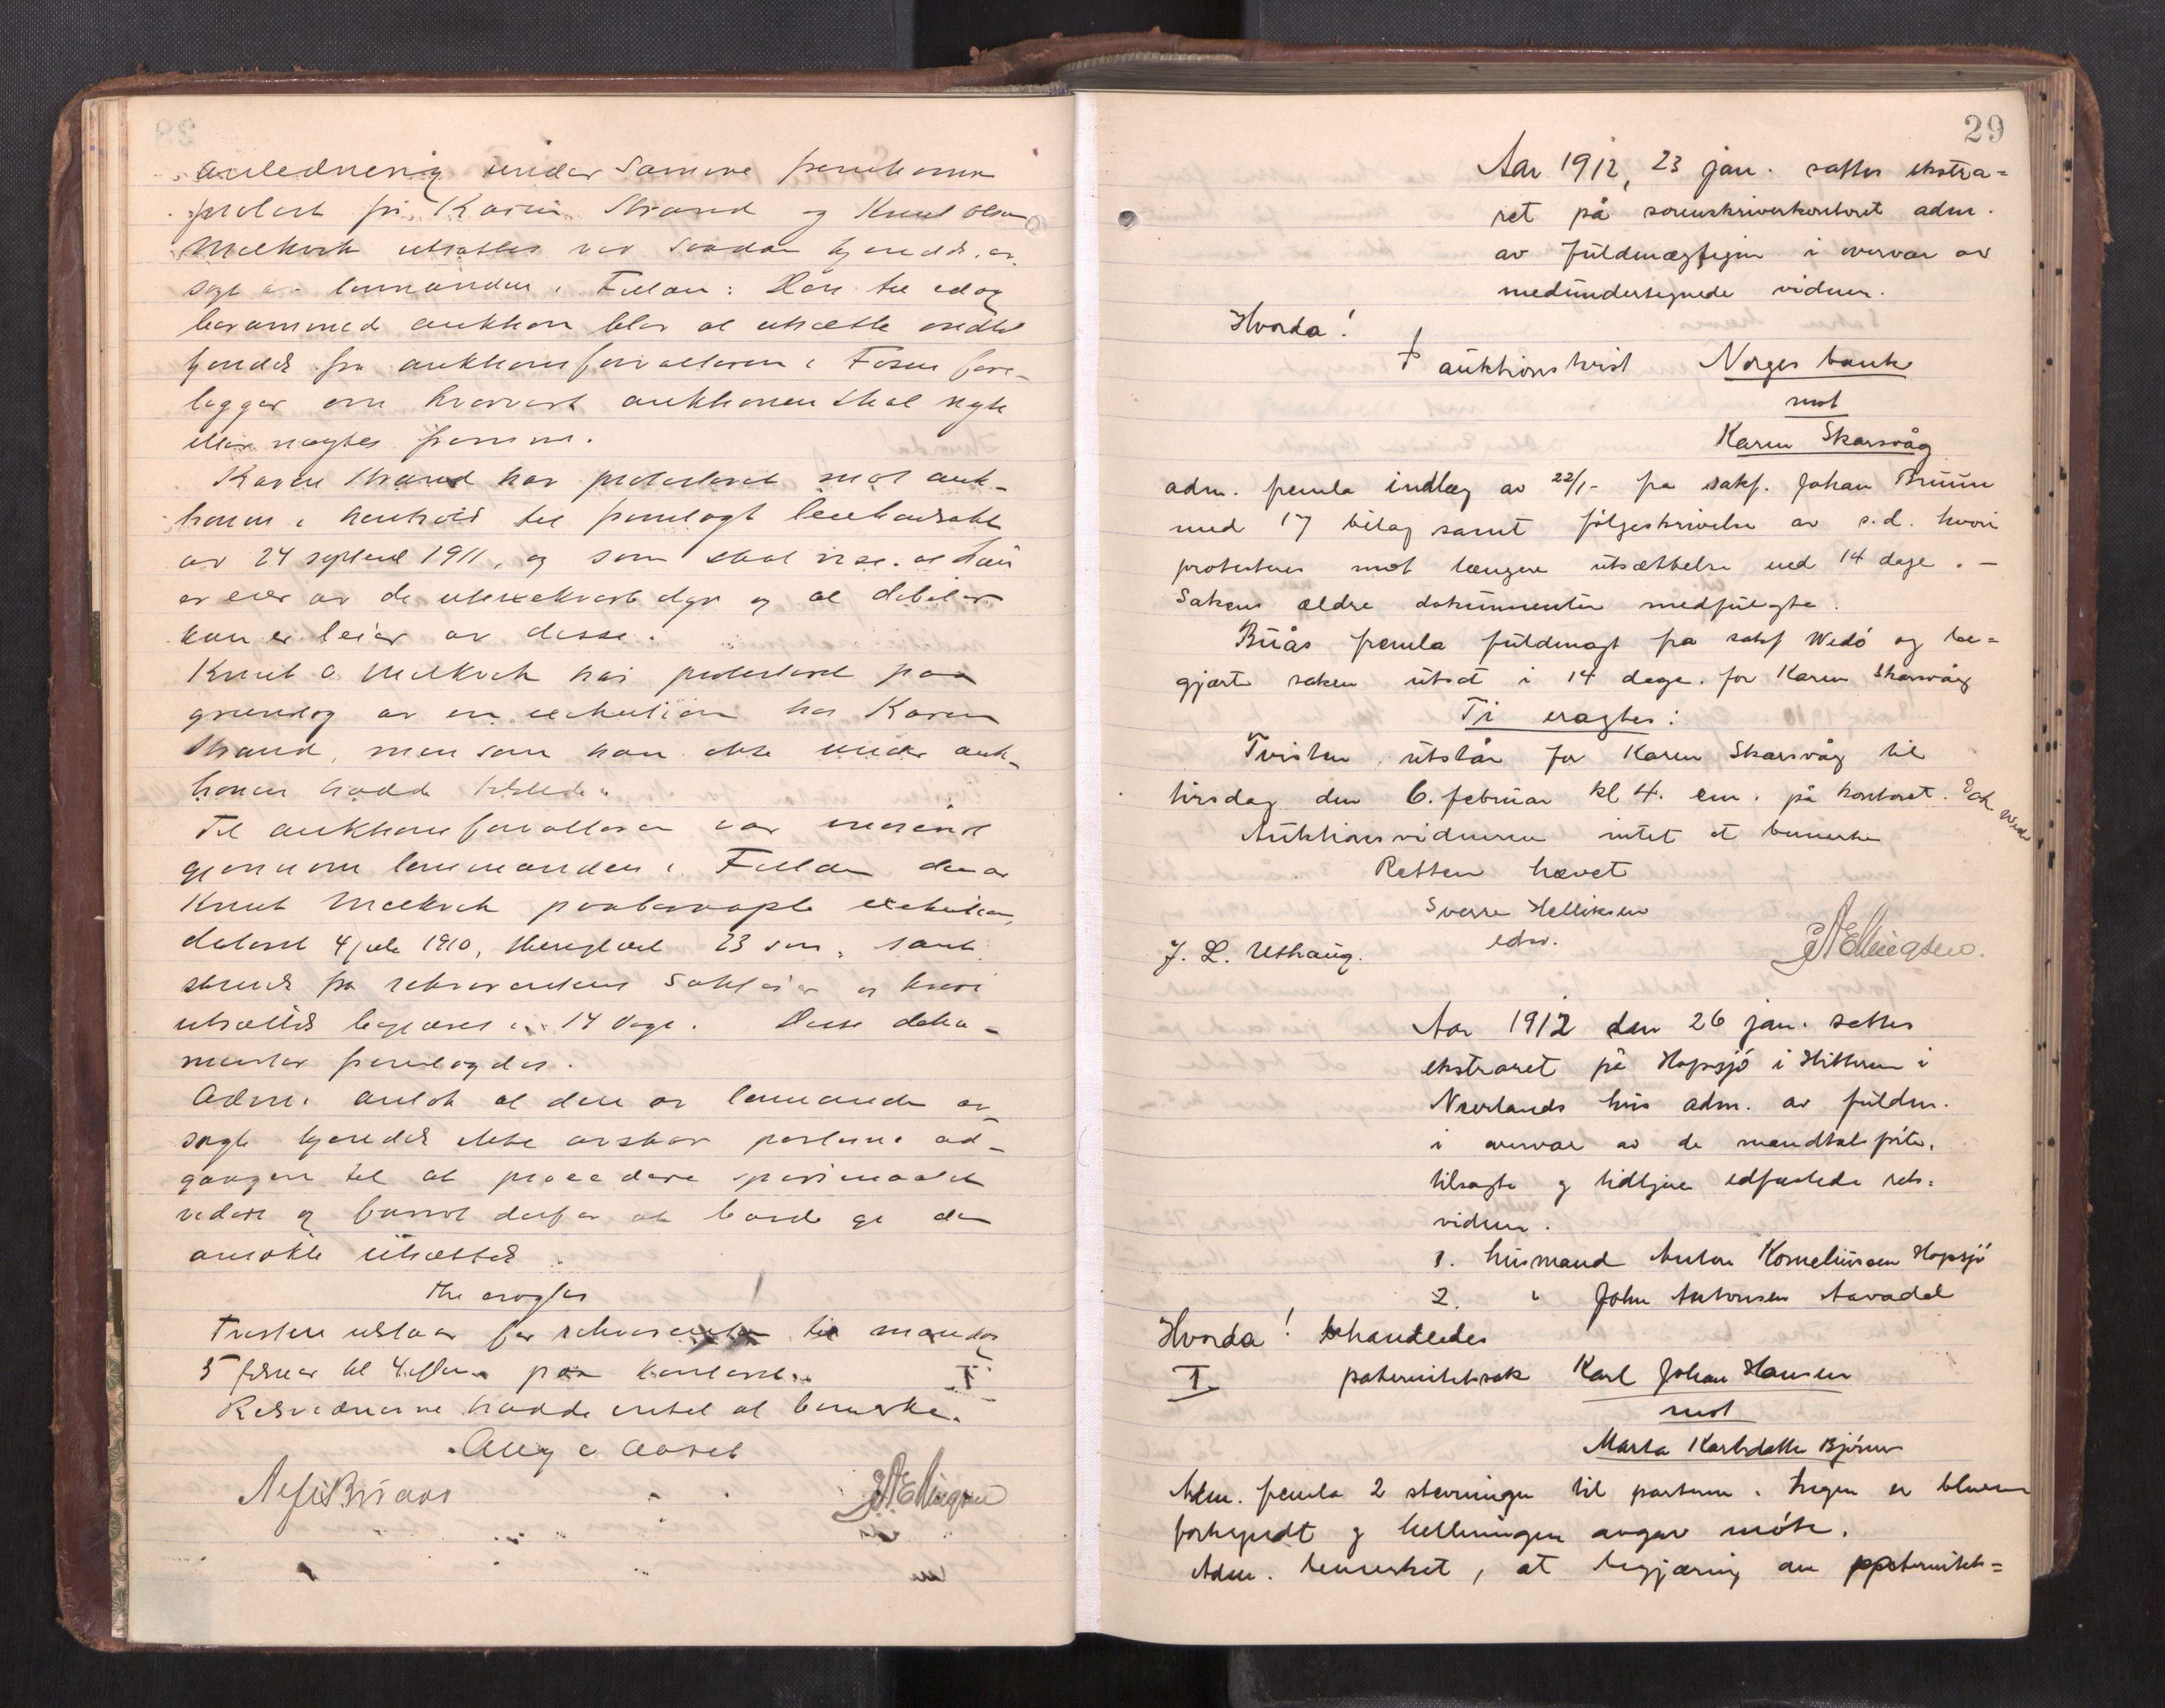 anledning under samme fremkomne
protest fra Karen Strand og Knut Olsen
Melkvik utsattes ved saadan kjendelse av-
sagt av lensmanden i Fillan: Den til idag
berammed auktion blir at utsætte indtil
kjendels fra auktionsforvalteren i Fosen fore-
ligger om hvorvidt auktionen skal nyte
eller nægtes fremme.
Karen Strand har protesteret mot auk-
tionen i henhold til fremlagt leiekontrakt
av 24 septemb 1911, og som skal vise at hun
er eier av de utexekverte dyr og at debitor
kun er leier av disse.
Knut O. Melkvik har protesteret paa
grundlag av en exekution hos Karen
Strand, men som han ikke under auk-
tionen hadde tilstede.
Til auktionsforvalteren var indsendt
gjennem lensmanden i Fillan den av
Knut Melkvik paaberaapte exekution,
dateret 4 juli 1910, thinglæst 23 s.m., samt
skrivelse fra rekvirentens sakfører hvori
utsættelse begjæres i 14 dage. Disse doku-
menter fremlagdes.
Adm. antok at den av lensmanden av-
sagte kjendelse ikke avskar parterne ad-
gangen til at procedere spørsmaalet
videre og fandt derfor at burde gi den
ansøkte utsættelse
Thi eragtes
Tvisten utstaar for rekvirenten til mandag
5 februar kl 4 efterm. paa kontoret.
Retsvidnerne hadde intet at bemerke.
29
Aar 1912, 23 jan. sattes ekstra=
ret på sorenskriverkontoret adm.
av fuldmægtigen i overvær av
medundertegnede vidner.
Hvorda!
auktionstvist Norges bank
mot
Karen Skarsvåg
adm. fremla indlæg av 22/1- fra sakf. Johan Bruun
med 17 bilag samt følgeskrivelse av s.d. hvori
protesteres mot længere utsættelse end 14 dage. –
Sakens ældre dokumenter medfulgte.
Buås fremla fuldmagt fra sakf Wedø og be=
gjærte saken utsat i 14 dage. for Karen Skarsvåg
Ti eragtes:
Tvisten utstår for Karen Skarsvåg til
tirsdag den 6. februar kl 4. em. på kontoret.
Auktionsvidnerne intet at bemerke
Retten hævet
Sverre Helliksen
edsv.
J. L. Uthaug.
Aar 1912 den 26 jan. sattes
ekstraret på Hopsjø i Hitteren i
Nærlands hus adm. av fuldm.
i overvær av de mandtalsførte,
tilsagte og tidligere edfæstede rets=
vidner.
1. husmand Anton Korneliussen Hopsjø
2. " John Antonsen Aavadal
Hvorda! behandledes
I paternitetssak Karl Johan Hansen
mot
Marta Karlsdatter Bjørnen
Adm. fremla 2 stevninger til parterne. Ingen er bleven
forkyndt og kun stevningen angav møte.
Adm. bemerket, at begjæring om paternitets=